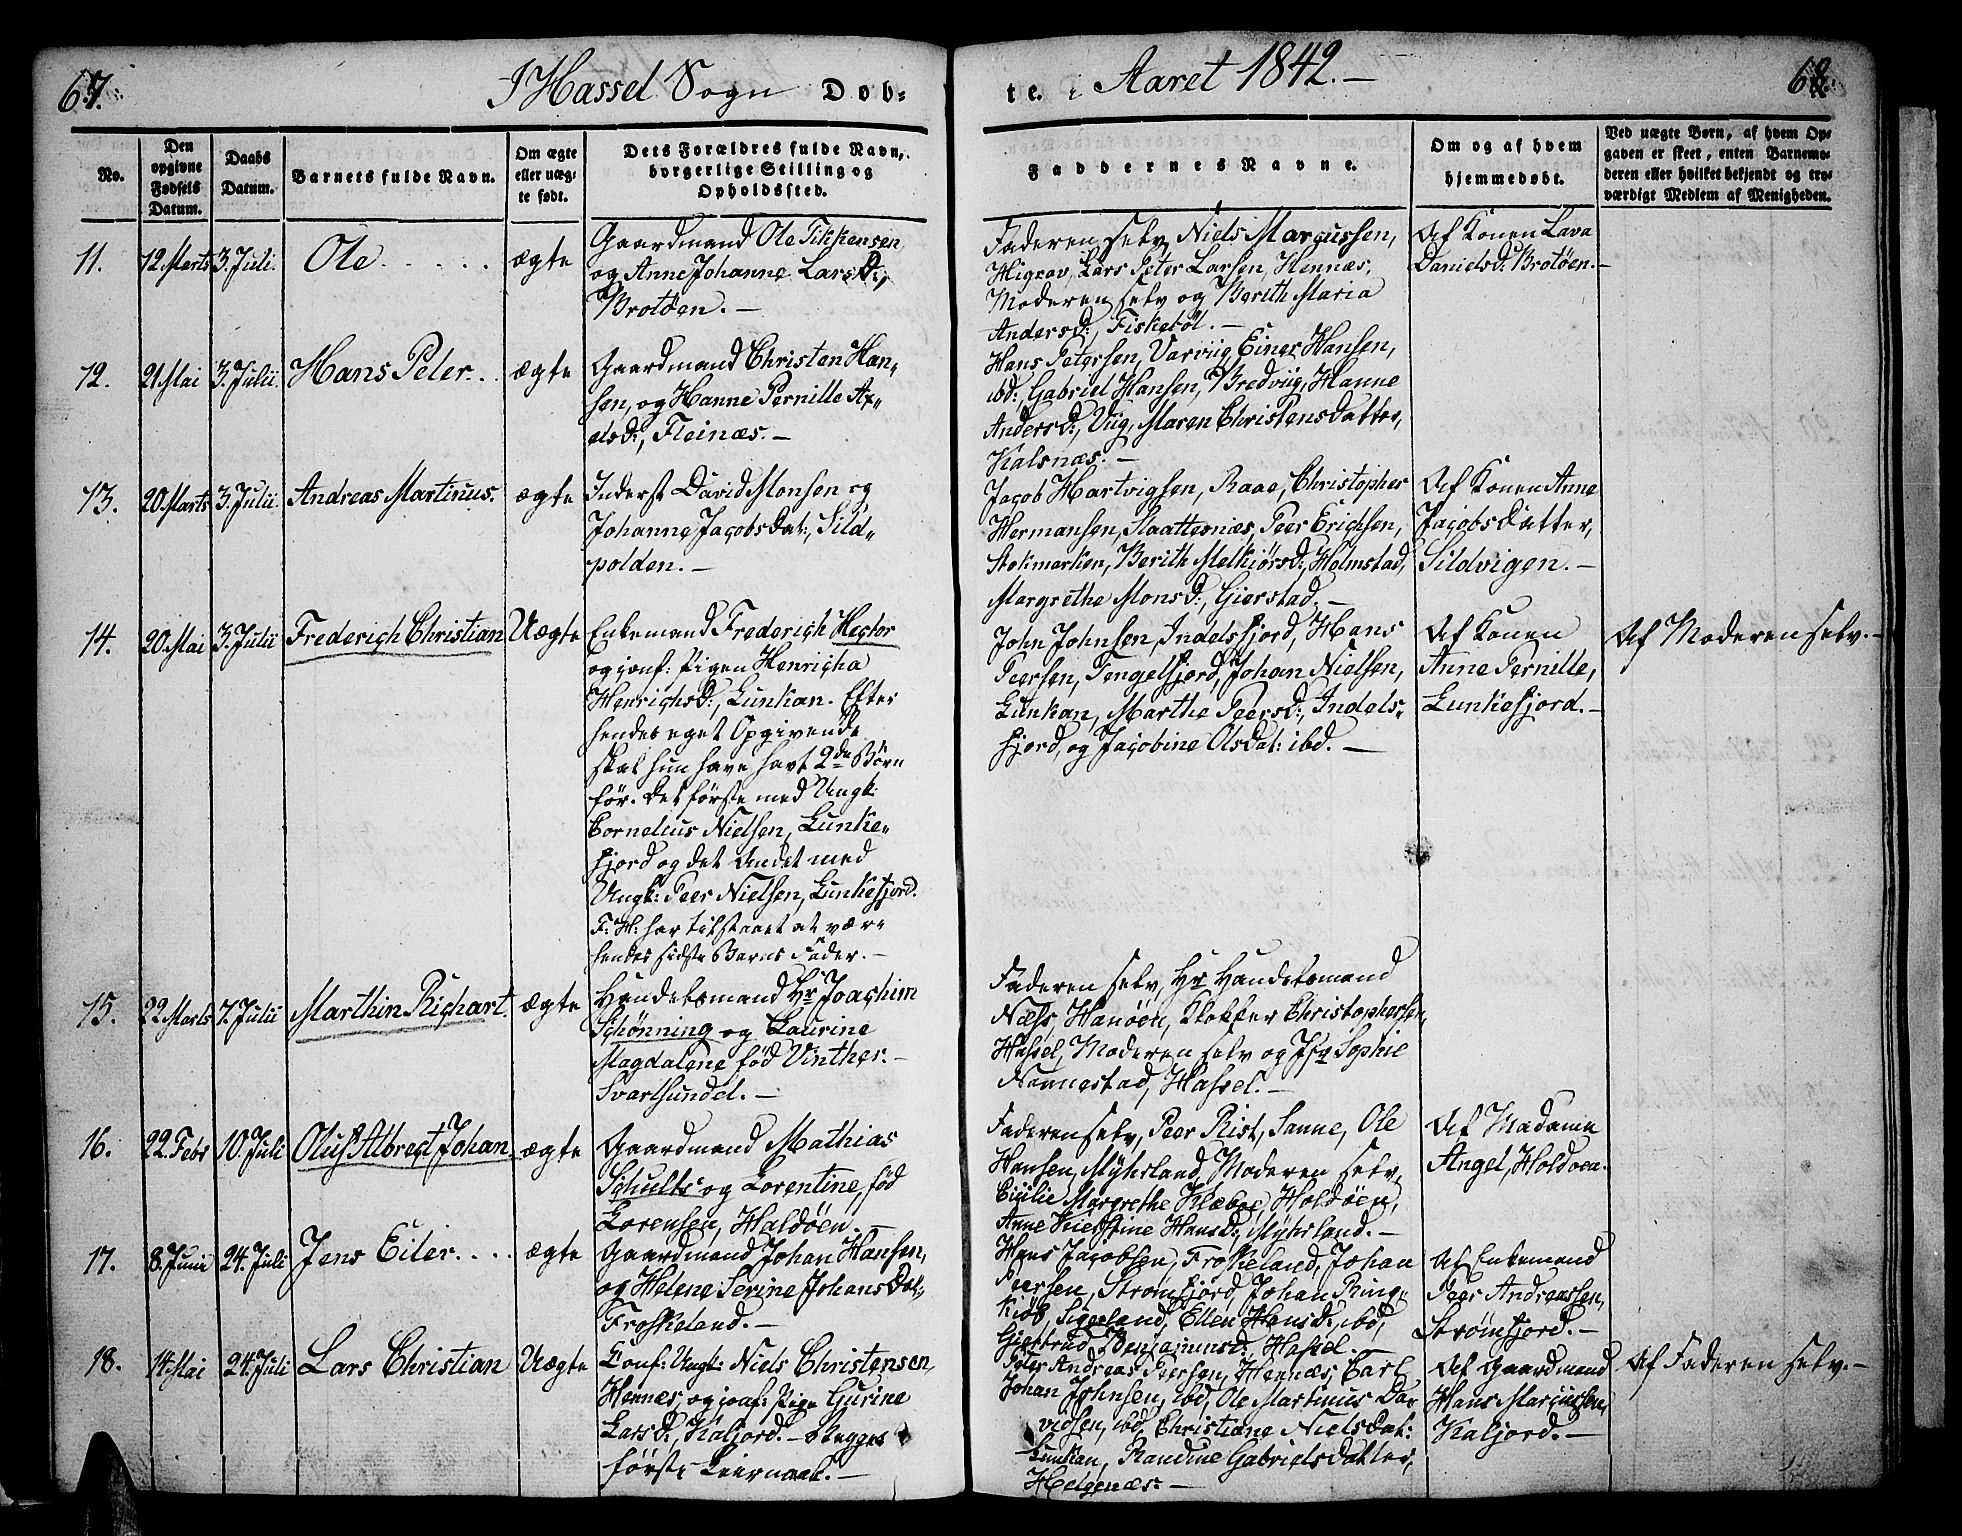 67.
I Hassel Sogn Dob-
te. i Aaret 1842.-
68.
No.
Den
opgivne
Fødsels
Datum.
Daabs
Datum.
Barnets fulde Navn.
Om ægte
eller uæg-
te født.
Dets Forældres fulde Navn,
borgerlige Stilling og
Opholdssted.
Faddernes Navne.
Om og af hvem
hjemmedøbt.
Ved uægte Børn, af hvem Op-
gaven er skeet, enten Barnemo-
deren eller hvilket bekjendt og tro-
værdigt Medlem af Menigheden.
11.
12 Marts
3. Juli.
Ole
ægte
Gaardmand Ole Tikkensen
og Anne Johanne Larsd:,
Brotøen.-
Faderen selv, Niels Marcussen,
Higrav, Lars Peter Larsen, Hennæs,
Moderen selv og Berith Maria
Andersd:, Fiskebøl.-
Af Konen Lava
Danielsd: Brotøen.-
12.
21 Mai
3. Julii
Hans Peter
ægte
Gaardmand Christen Han-
sen, og Hanne Pernille Ax-
elsd:, Fleinæs.-
Hans Petersen, Varviig, Einer Hansen,
ibd:, Gabriel Hansen, Bredviig, Hanne
Andersd:, Viig, Maren Christensdatter,
Kalsnæs.-
13.
20 Marts
3. Julii
Andreas Martinus.
ægte
Inderst David Monsen og
Johanne Jacobsdat:, Sild-
polden.-
Jacob Hartvigsen, Raae, Christopher
Hermansen, Slaattesnæs, Peer Erichsen,
Stokmarken, Berith Melkiørsd:, Holmstad,
Margrethe Monsd:, Gierstad.-
Af Konen Anne
Jacobsdatter,
Sildvigen.-
14.
20 Mai
3. Julii
Frederich Christian
Uægte
Enkemand Frederich Hector
og conf: Pigen Henricha
Henrichsd:, Lunkan. Efter
hendes eget Opgivende
skal hun have havt 2de Børn
før. Det første med Ungk:
Cornelius Nielsen, Lunke-
fjord og det andet med
Ungk: Peer Nielsen, Lunkefjord.
F. H: har tilstaaet at være
hendes sidste Barns Fader.-
John Johnsen, Indelsfjord, Hans
Peersen, Tengelfjord, Johan Nielsen,
Lunkan, Marthe Peersd:, Indels-
fjord, og Jacobine Olsdat: ibd.-
Af Konen
Anne Pernille,
Lunkefjord.-
Af Moderen selv.-
15.
22 Marts
7. Julii
Marthin Richart.
ægte
Handelsmand Hr Joachim
Schønning og Laurine
Magdalene fød Vinther.-
Svartsundet.-
Faderen selv, Hr Handelsmand
Næss, Hanøen, Klokker Christophersen,
Hassel, Moderen selv og Jfr Sophie
Nannestad, Hassel.-
16.
22 Febr
10. Juli
Oluf Albrect Johan
ægte
Gaardmand Mathias
Schults og Lorentine, fød
Lorensen, Haldøen.-
Faderen selv, Peer Rist, Sanne, Ole
Hansen, Myhrland, Moderen selv,
Cicilie Margrethe Klæboe, Holdøen,
Anne Kierstine Hansd:, Myhrland.-
Af Madame
Angel, Holdøen.
17.
8. Juni
24. Juli
Jens Eiler
ægte
Gaardmand Johan Hansen,
og Helene Serine Johansdat:,
Froskeland.-
Hans Jacobsen, Froskeland, Johan
Peersen, Strømfjord, Johan Ring-
kiøb, Sigerland, Ellen Hansd:, ibd,
Giertrud Benjaminsd:, Hassel.-
Af Enkemand
Peer Andreassen,
Strømfjord.-
18.
14 Mai
24. Juli
Lars Christian
Uægte
Conf: Ungk: Niels Christensen,
Hennæs, og conf: Pige Gurine
Larsd:, Kaljord.- Begges
første Leiermaal.-
Peter Andreas Peersen, Hennæs, Carl
Johan Johnsen, ibd, Ole Martinus Da-
vidsen, ibd, Christiane Nielsdat:
Lunkan, Randine Gabrielsdatter,
Helgenæs.-
Af Gaardmand
Hans Marcussen,
Kaljord.-
Af Faderen selv.-